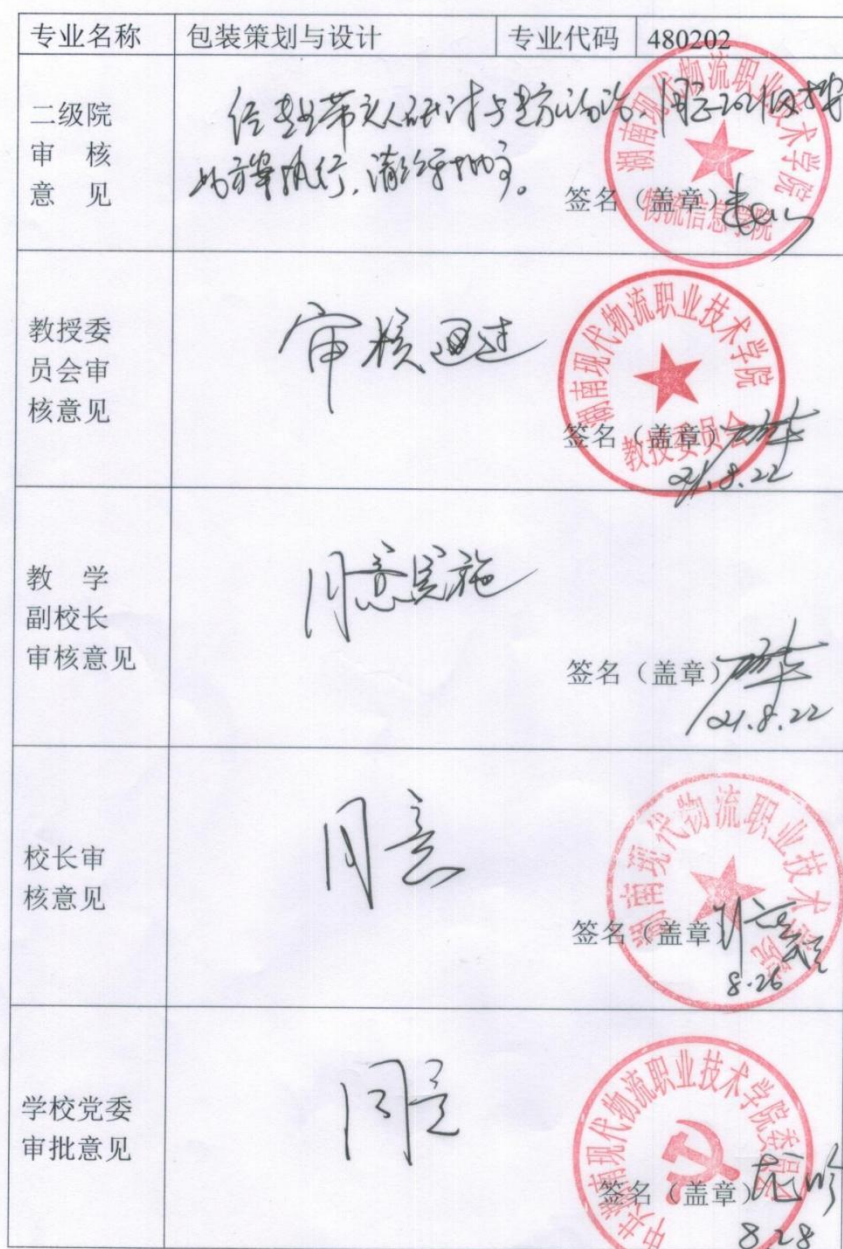 专业名称 包装策划与设计 专业代码 480202
二级院
审 核
意 见
签名（盖章）
湖南现代物流职业技术学院
物流信息学院
教授委
员会审
核意见
审核通过
签名（盖章）
湖南现代物流职业技术学院
教授委员会
21.8.22
教 学
副校长
审核意见
同意实施
签名（盖章）
21.8.22
校长审
核意见
同意
签名（盖章）
湖南现代物流职业技术学院
8.26
学校党委
审批意见
同意
签名（盖章）
中共湖南现代物流职业技术学院委员会
8.28